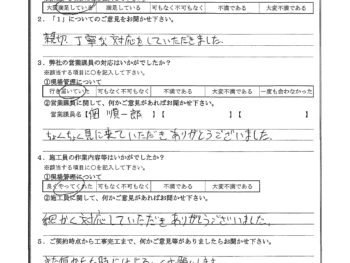 大変満足している 満足している 可もなく不可もなく 不満である 大変不満である
2．「1」についてのご意見をお聞かせ下さい。
親切、丁寧な対応をしていただきました。
3．弊社の営業議員の対応はいかがでしたか？
※該当する項目に○を記入して下さい。
①現場管理について
行き届いていた 可もなく不可もなく 不満である 大変不満である 一度も会わなかった
②営業議員に関して、何かご意見があればお聞かせ下さい。
営業議員名【 順一郎 】【 】【 】
ちょくちょく見に来ていただきありがとうございました。
4．施工員の作業内容等はいかがでしたか？
※該当する項目に○を記入して下さい。
①現場管理について
良くやってくれた 可もなく不可もなく 不満である 大変不満である
②施工員に関して、何かご意見があればお聞かせ下さい。
細かく対応していただきありがとうございました。
5．ご契約時点から工事完工まで、何かご意見等がありましたらお聞かせ下さい。